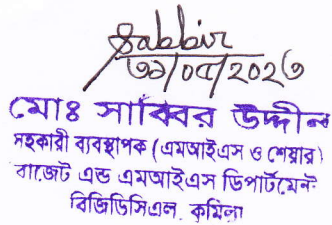 Sabbir
৩১/০৫/২০২৩
মোঃ সাব্বির উদ্দীন
সহকারী ব্যবস্থাপক (এমআইএস ও শেয়ার)
বাজেট এন্ড এমআইএস ডিপার্টমেন্ট
বিজিডিসিএল, কুমিল্লা